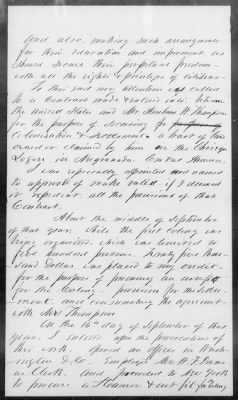 And also, making such arrangements
for their education and improvement as
should secure their perpetual freedom
with all the rights & privileges of citizens.
To this end my attention was called
to a Contract made & entered into, between
the United States and Mr. Ambrose W. Thompson
for the purpose of securing for
Colonization & Settlement a tract of land
owned or claimed by him on the Chiriqui
Lagoon in New Granada, Central America.
I was especially appointed and named
to approve & make valid, if I deemed
expedient, all the provisions of that
Contract.
About the middle of September
of that year, while the first Colony was
being organized, which was limited to
five hundred persons, Twenty five thou-
sand Dollars was placed to my credit
for the purpose of procuring an outfit
for the Colony, provision for the settle-
ment, and consummating the agreement
with Mr. Thompson
On the 16th day of September of that
year, I entered upon the prosecution of
this work, opened an office in Wash-
ington D.C. Employed Mr. W. F.
as Clerk, and proceeded to New York
to procure a Steamer & outfit for the Colony